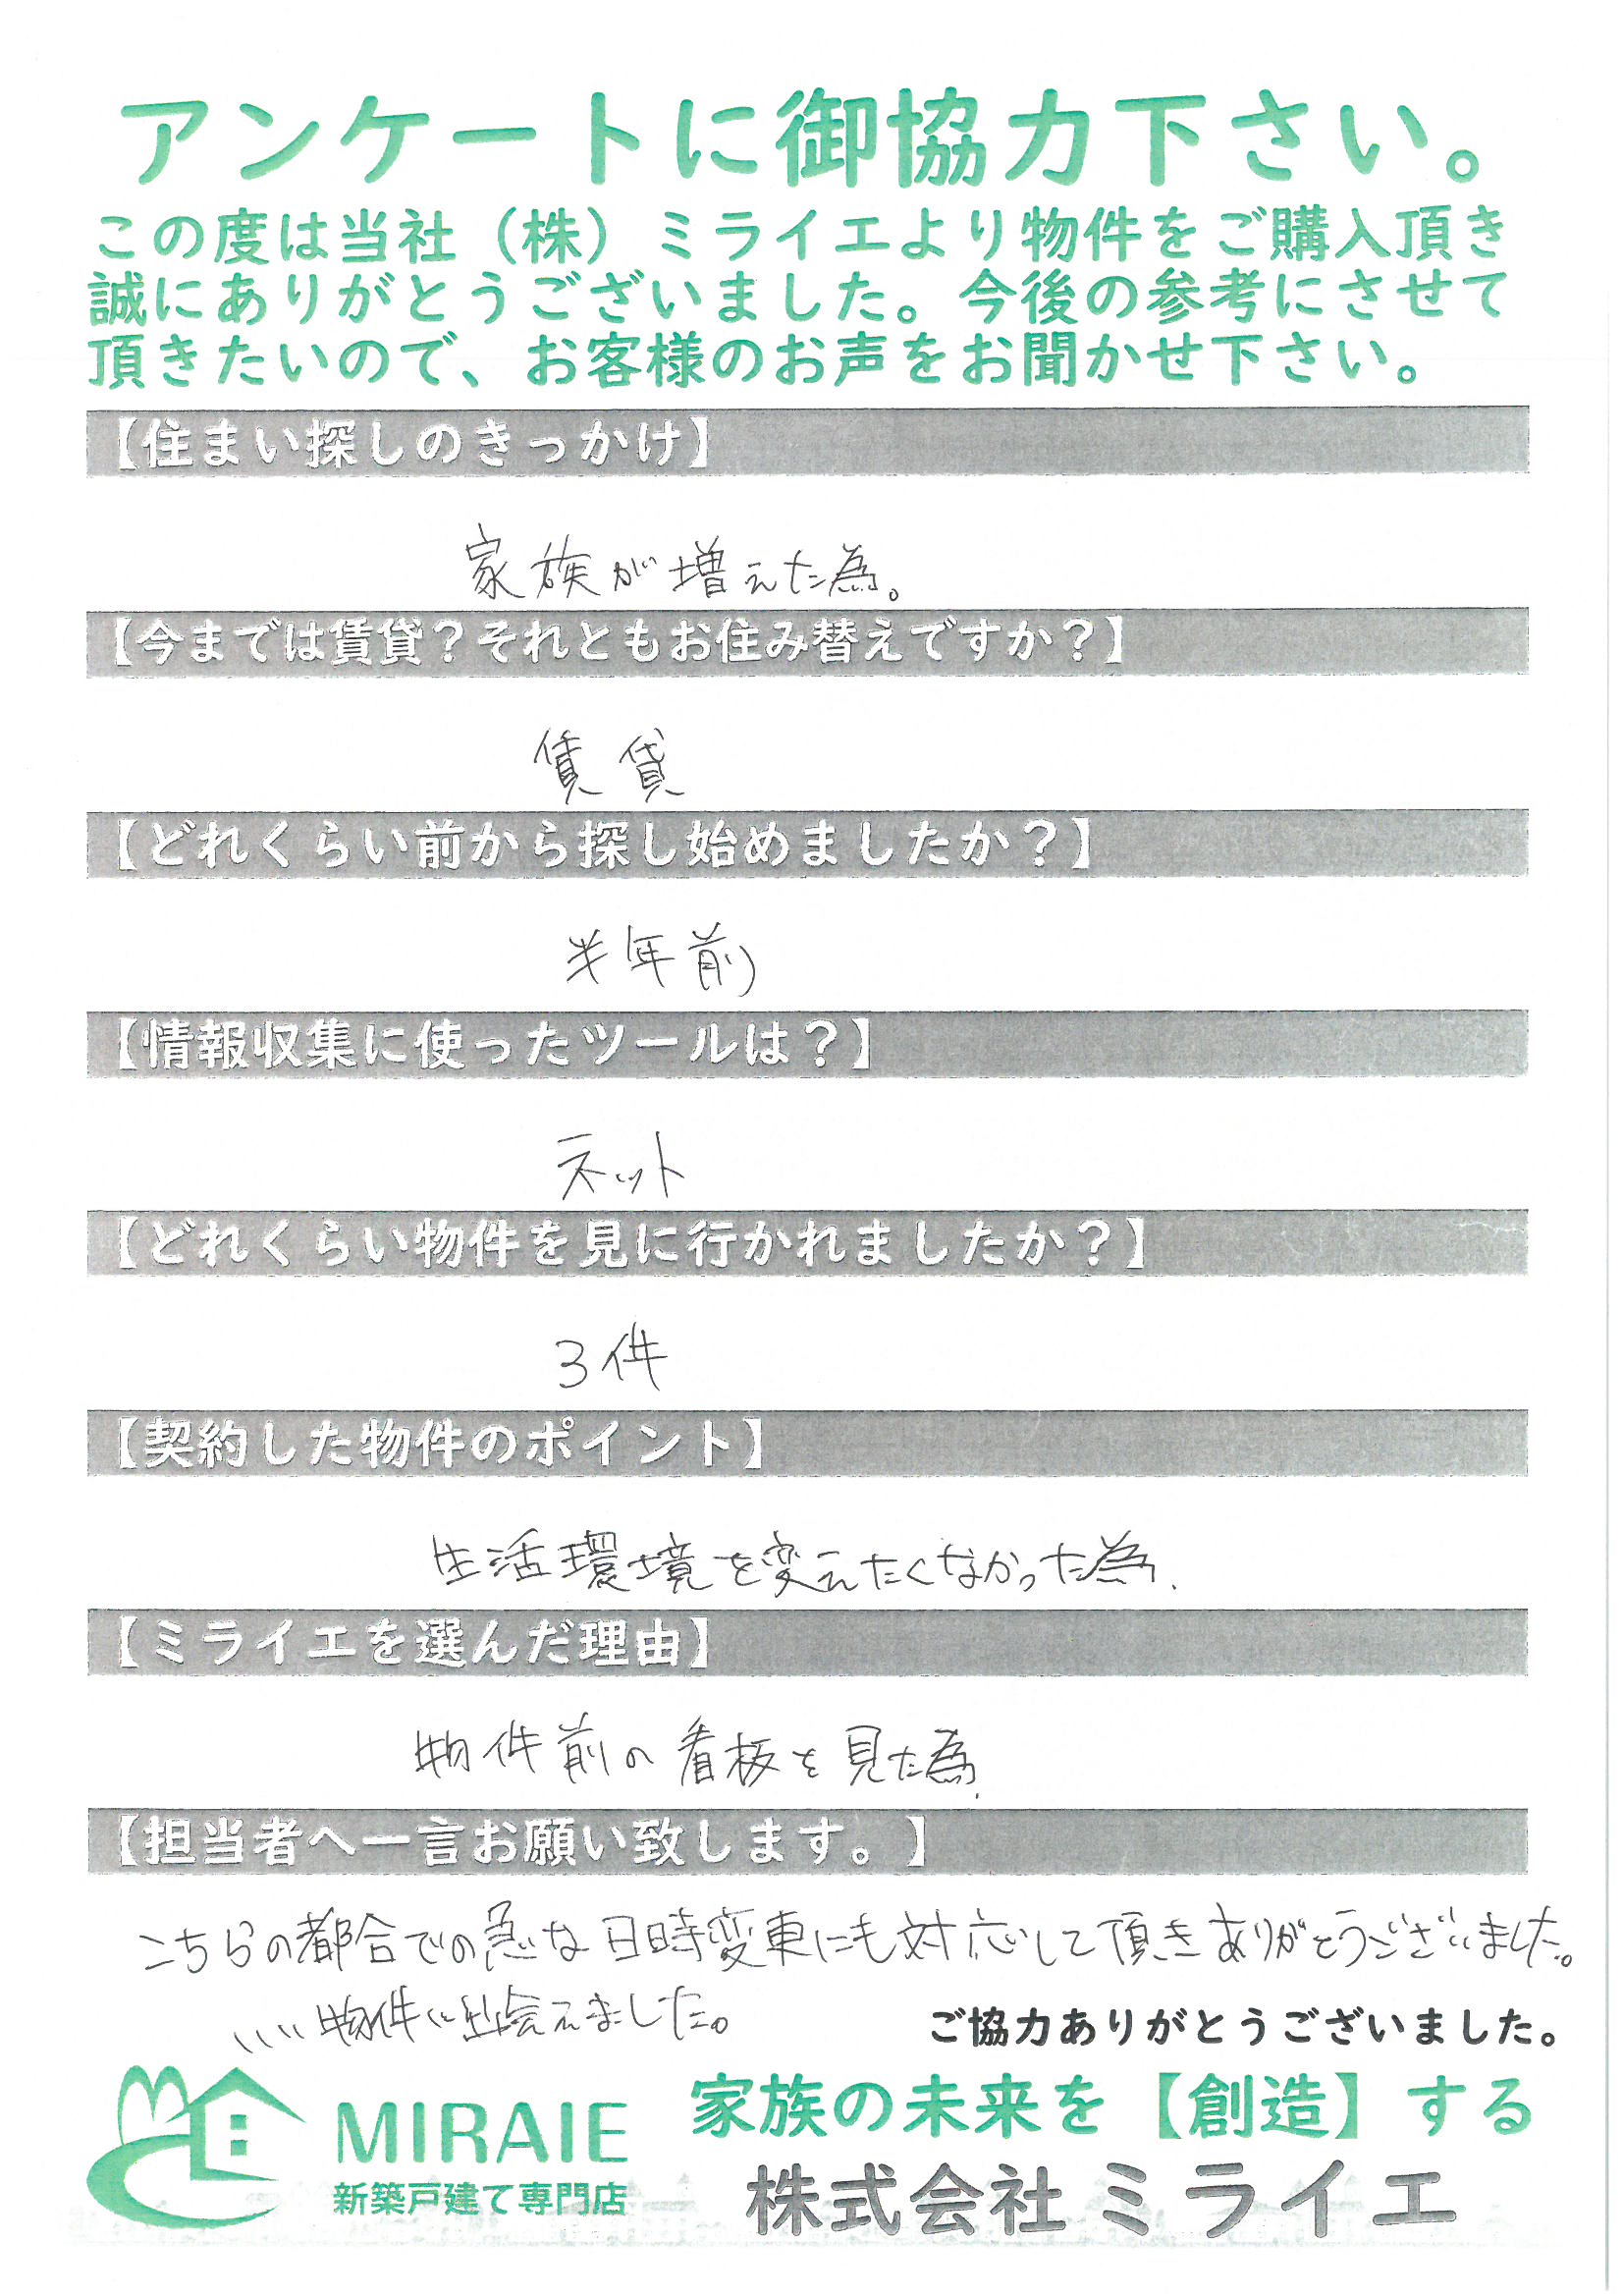 アンケートに御協力下さい。
この度は当社（株）ミライエより物件をご購入頂き
誠にありがとうございました。今後の参考にさせて
頂きたいので、お客様のお声をお聞かせ下さい。
【住まい探しのきっかけ】
家族が増えた為。
【今までは賃貸？それともお住み替えですか？】
賃貸
【どれくらい前から探し始めましたか？】
半年前
【情報収集に使ったツールは？】
ネット
【どれくらい物件を見に行かれましたか？】
3件
【契約した物件のポイント】
生活環境を変えたくなかった為.
【ミライエを選んだ理由】
物件前の看板を見た為.
【担当者へ一言お願い致します。】
こちらの都合での急な日時変更にも対応して頂きありがとうございました。
いい物件に出会えました。
ご協力ありがとうございました。
家族の未来を【創造】する
MIRAIE
新築戸建て専門店
株式会社ミライエ